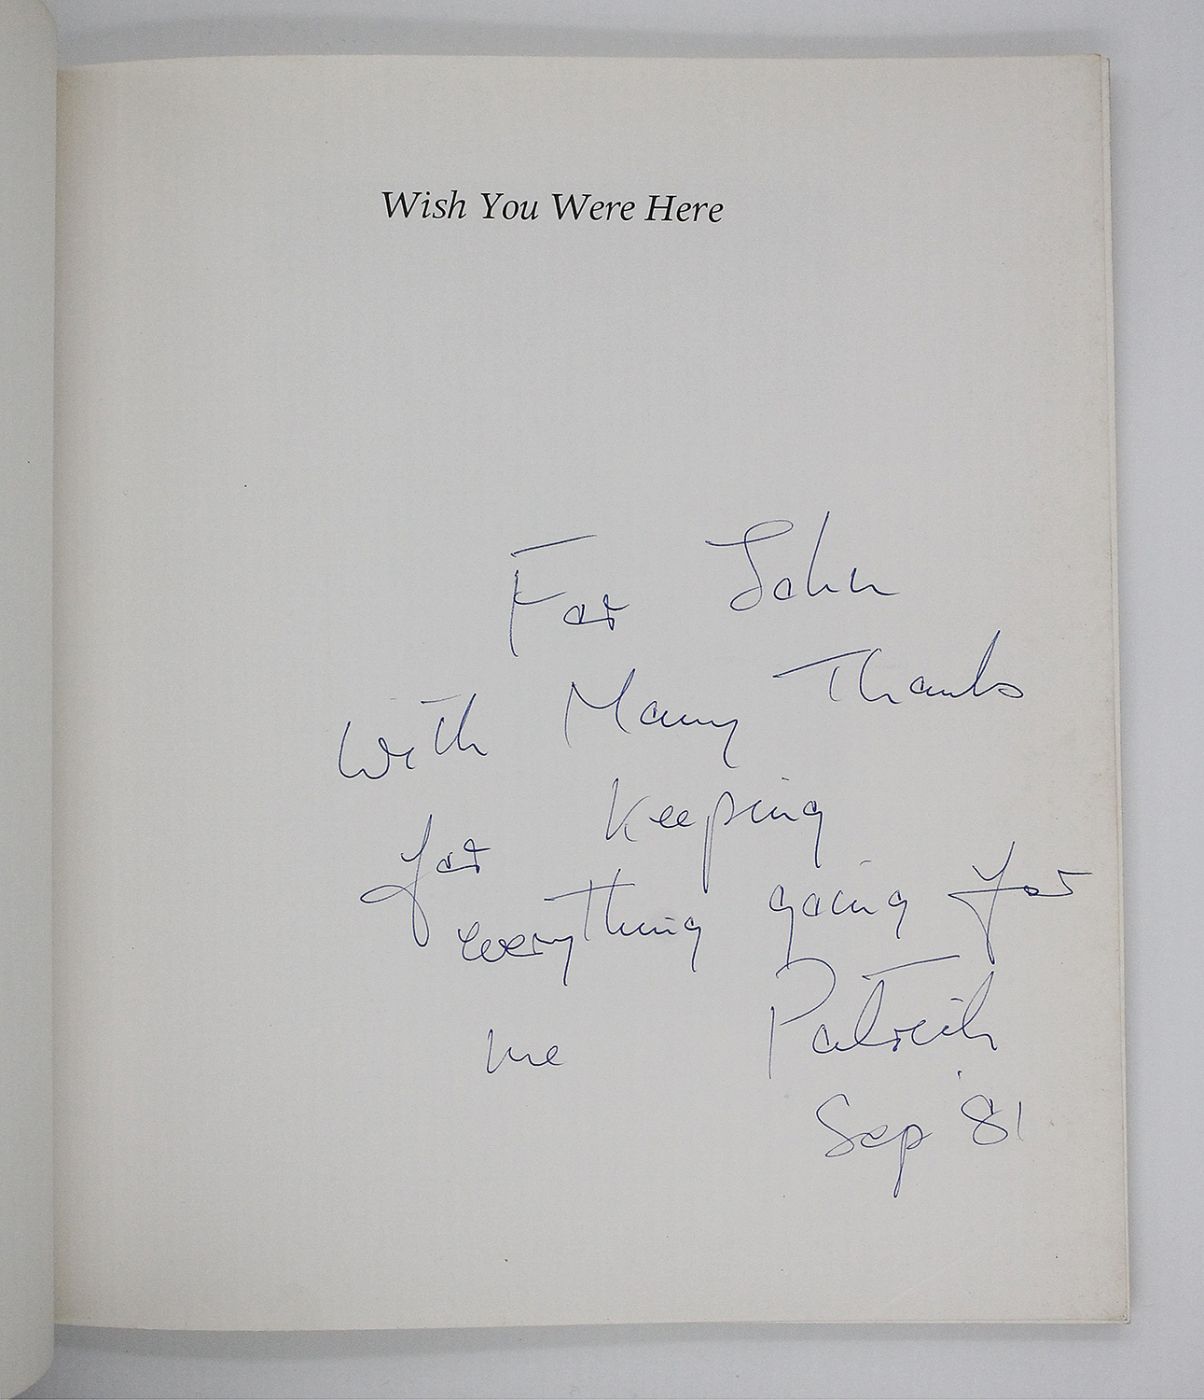 Wish You Were Here
For John
With Many Thanks
for Keeping
everything going for
me Patrick
Sep '81